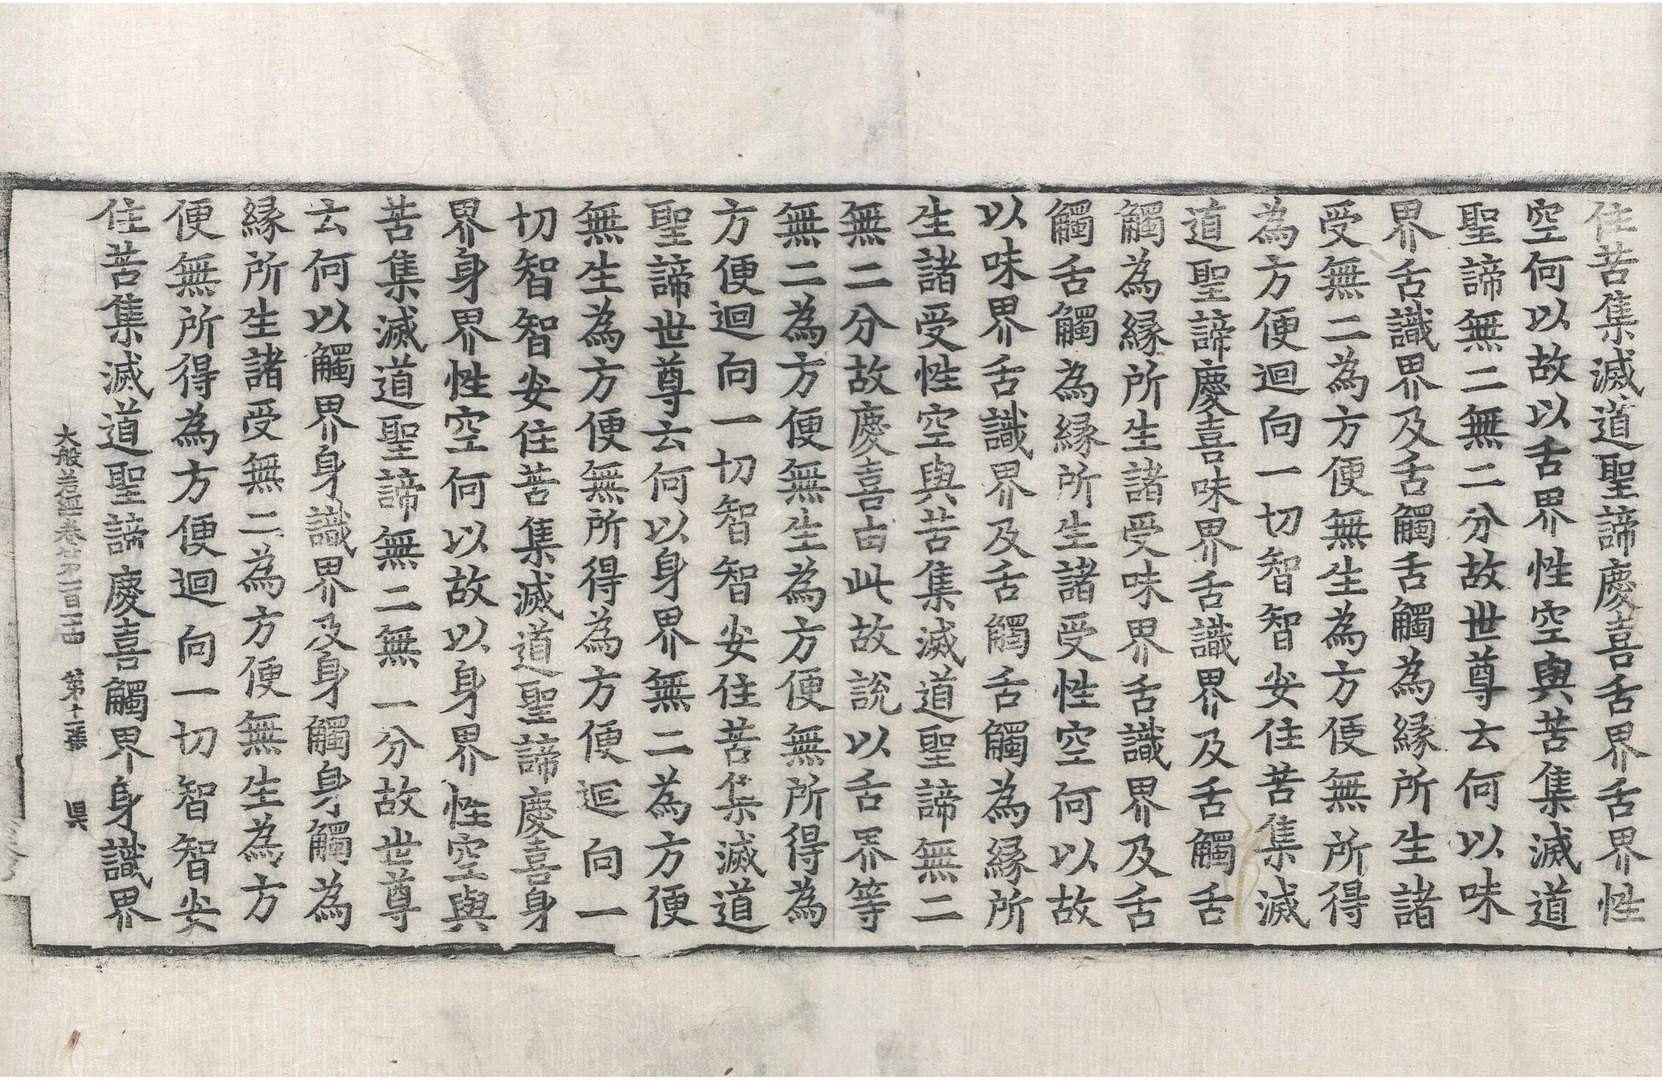 住苦集滅道聖諦慶喜舌界舌界性
空何以故以舌界性空與苦集滅道
聖諦無二無二分故世尊云何以味
界舌識界及舌觸舌觸為緣所生諸
受無二為方便無生為方便無所得
為方便迴向一切智智安住苦集滅
道聖諦慶喜味界舌識界及舌觸舌
觸為緣所生諸受味界舌識界及舌
觸舌觸為緣所生諸受性空何以故
以味界舌識界及舌觸舌觸為緣所
生諸受性空與苦集滅道聖諦無二
無二分故慶喜由此故說以舌界等
無二為方便無生為方便無所得為
方便迴向一切智智安住苦集滅道
聖諦世尊云何以身界無二為方便
無生為方便無所得為方便迴向一
切智智安住苦集滅道聖諦慶喜身
界身界性空何以故以身界性空與
苦集滅道聖諦無二無一分故世尊
云何以觸界身識界及身觸身觸為
緣所生諸受無二為方便無生為方
便無所得為方便迴向一切智智安
住苦集滅道聖諦慶喜觸界身識界
大般若經卷第一百 第十二張